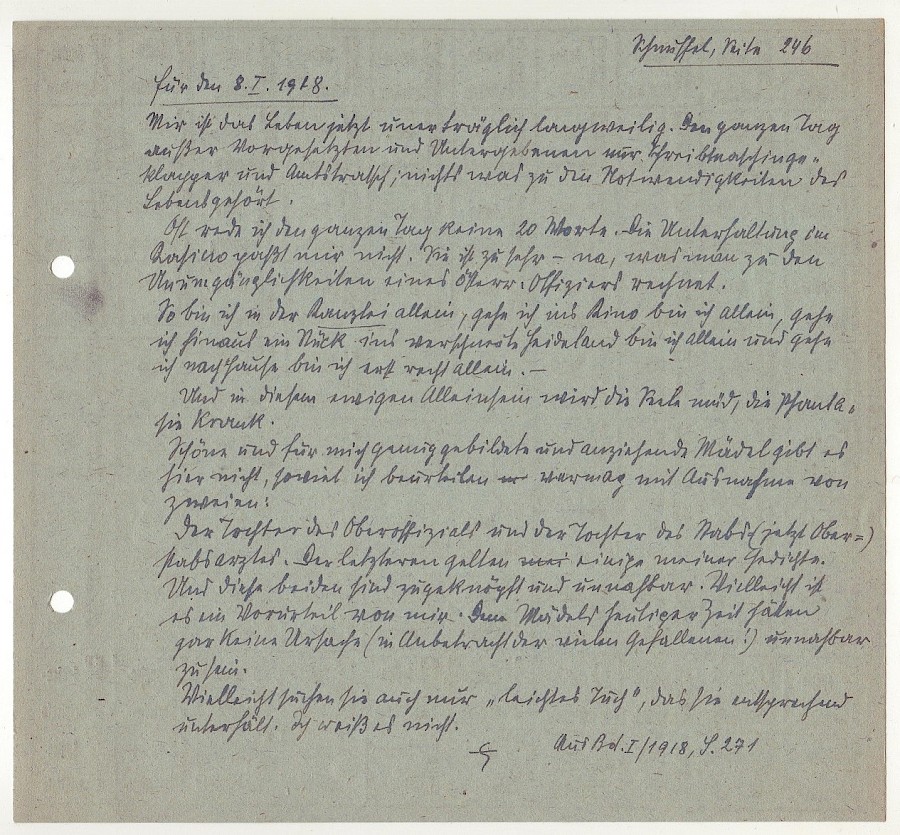 Schnuffel, Seite 246
für den 8. I. 1918.
Mir ist das Leben jetzt unerträglich langweilig. Den ganzen Tag
außer Vorgesetzten und Untergebenen nur Schreibmaschinge-
klapper und Amtstratsch; nichts was zu den Notwendigkeiten des
Lebens gehört.
Oft rede ich den ganzen Tag keine 20 Worte. Die Unterhaltung im
Kasino paßt mir nicht. Sie ist zu sehr – na, was man zu den
Unumgänglichkeiten eines österr. Offiziers rechnet.
So bin ich in der Kanzlei allein, gehe ich ins Kino bin ich allein, gehe
ich hinaus ein Stück ins verschneite Heideland bin ich allein und gehe
ich nach Hause bin ich erst recht allein. –
Und in diesem ewigen Alleinsein wird die Seele müd, die Phanta-
sie krank.
Schöne und für mich genug gebildete und anziehende Mädel gibt es
hier nicht, soviel ich beurteilen vermag mit Ausnahme von
zweien:
Der Tochter des Oberoffizials und der Tochter des Stabs (jetzt Ober=)
stabsarztes. Der letzteren gelten einige meiner Gedichte.
Und diese beiden sind zugeknöpft und unnahbar. Vielleicht ist
es ein Vorurteil von mir. Denn Mädels heutiger Zeit hätten
gar keine Ursache (in Anbetracht der vielen Gefallenen!) unnahbar
zu sein.
Vielleicht suchen sie auch nur „leichtes Tuch", das sie entsprechend
unterhält. Ich weiß es nicht.
Aus Bd. I/1918, S. 271